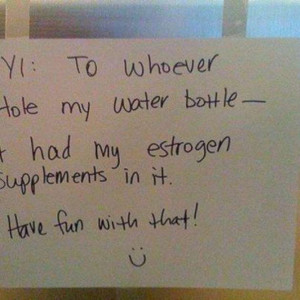 YI: To whoever
tole my water bottle—
t had my estrogen
supplements in it.
Have fun with that!